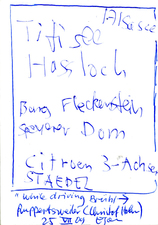 Alsace
Titisee
Hassloch
Burg Fleckenstein
Speyerer Dom
Citroen 3-Achser
STAEDEL
while driving Brechl →
Ruppertsweiler
25 VII 09